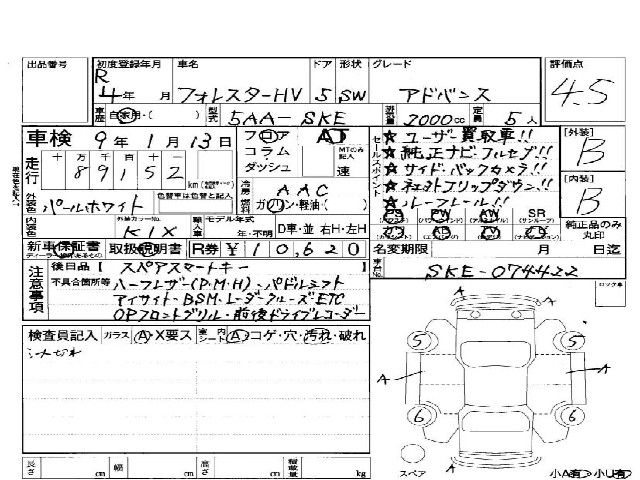 出品番号 初度登録年月 車名 ドア 形状 グレード 評価点
R 4年 月 フォレスターHV 5 SW アドバンス 4.5
車歴 自家用・( ) 型式 5AA-SKE 排気量 2000cc 定員 5人
車検 9年 1月 13日 フロア AT セールスポイント ★ユーザー買取車!! [外装] B
走行 十 万 千 百 十 一 コラム・ MTのみ記入 ★純正ナビ・フルセグ!!
89152 km ダッシュ 速 ★サイドバックカメラ!! [内装] B
外装色 パールホワイト 色替車は色替と記入 冷房 AAC ★ルーフレール!!
燃料 ガソリン・軽油・( )
PS PW AW SR
内装色 外装カラーNo. K1X 輸入車 モデル年式 年・不明 D車・並 右H・左H 純正品のみ丸印
新車保証書 取扱説明書 R券 ¥10,620 名変期限 月 日迄
車台No. SKE-074422
注意事項 後日品【 スペアスマートキー 】 ロック車
不具合箇所等 ハーフレザー(P・M・H)・パドルシフト
アイサイト・BSM・レーダークルーズ・ETC
OPフロントグリル・前後ドライブレコーダー
検査員記入 ガラス A・X要ス 室内シート A コゲ・穴・汚れ・破れ
5 5
A A A
6 6
A
長さ cm 幅 cm 高さ cm 積載量 kg スペア 小A有 小U有